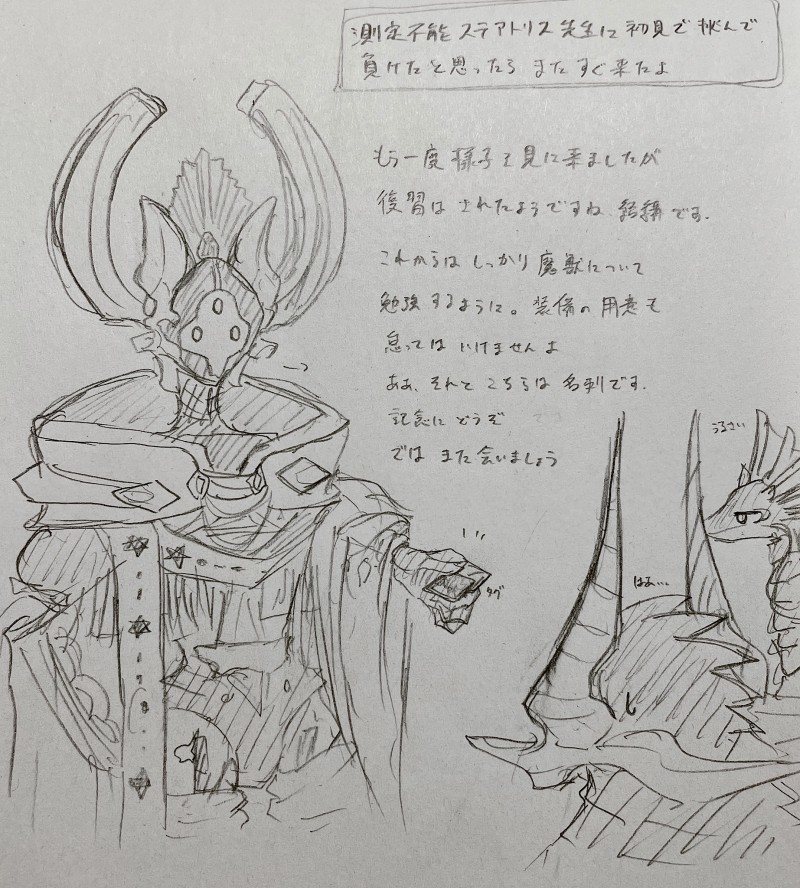 測定不能ステアトリス先生に初見で挑んで
負けたと思ったら またすぐ来たよ
もう一度 様子を見に来ましたが
復習は されたようですね、結構です.
これからは しっかり 魔獣について
勉強するように。装備の用意も
怠っては いけませんよ
ああ、それと こちらは 名刺です.
記念に どうぞ
では また会いましょう
うるさい
はあ…
タグ